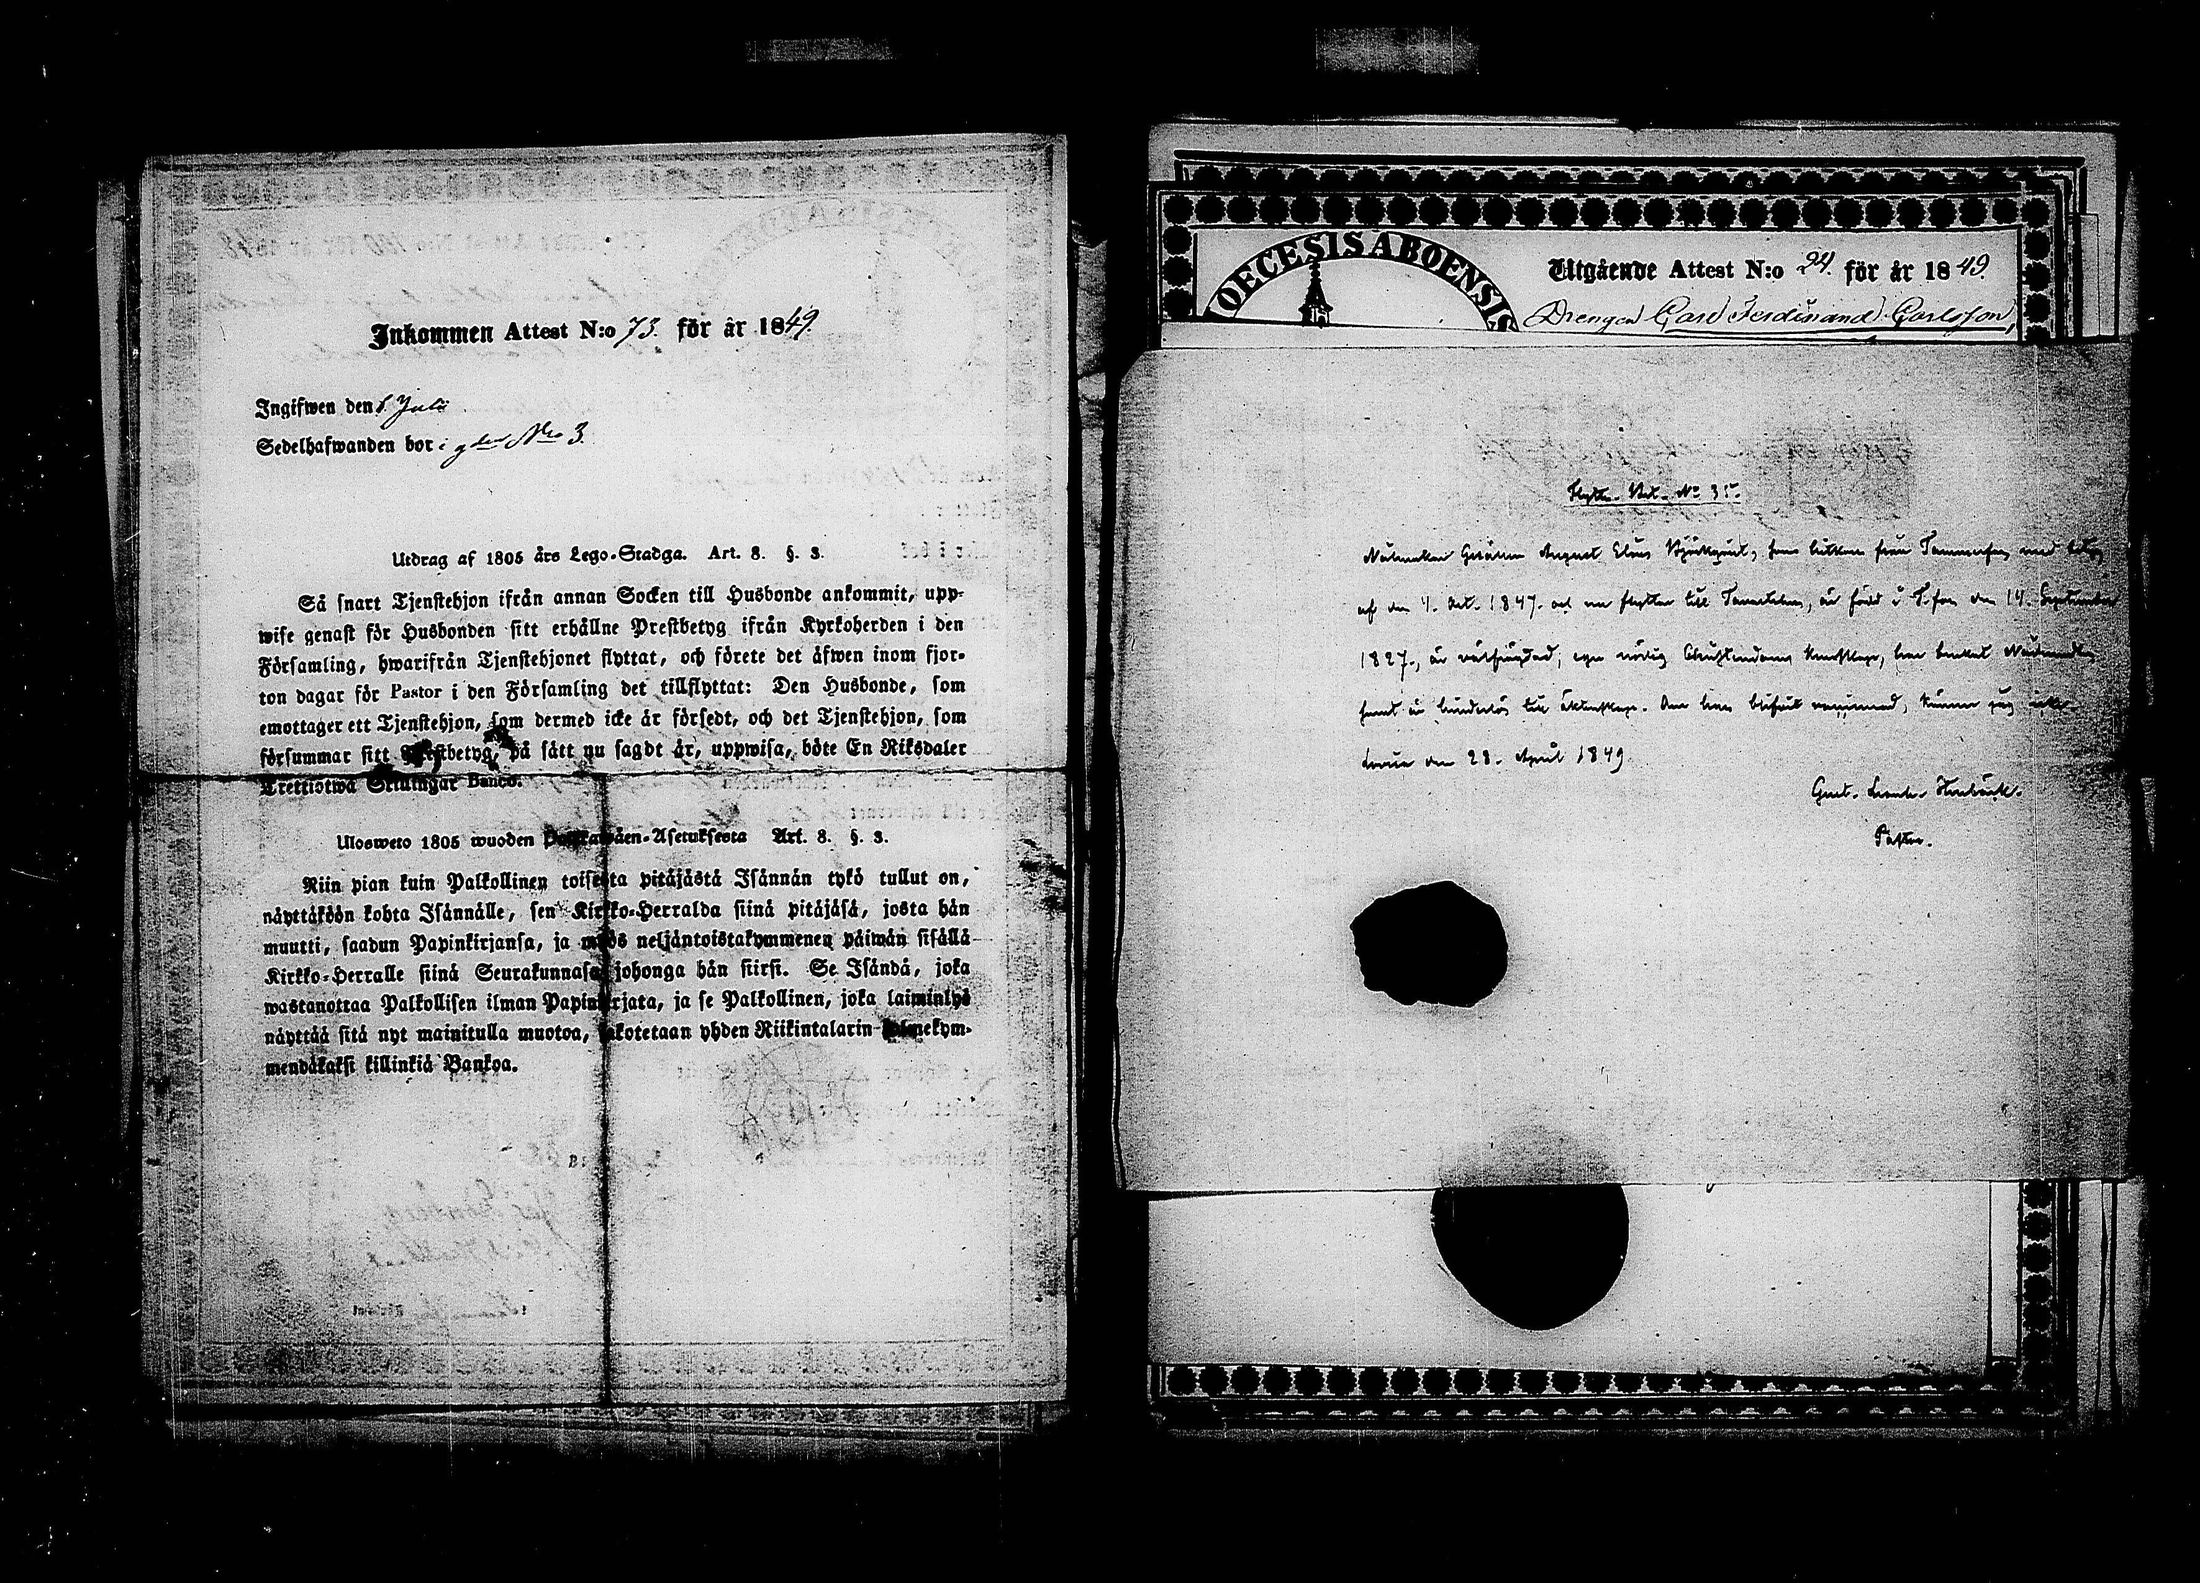 Inkommen Attest N:o 73. för år 1849.
Ingifwen den 8 Julii
Sedelhafwanden bor i gden Nro 3.
Utdrag af 1805 års Lego-Stadga. Art. 8. §. 3.
Så snart Tjenstehjon ifrån annan Socken till Husbonde ankommit, upp-
wise genast för Husbonden sitt erhållne Prestbetyg ifrån Kyrkoherden i den
Församling, hwarifrån Tjenstehjonet flyttat, och förete det äfwen inom fjor-
ton dagar för Pastor i den Församling det tillflyttat: Den Husbonde, som
emottager ett Tjenstehjon, som dermed icke är försedt, och det Tjenstehjon, som
försummar sitt Prestbetyg, på sätt nu sagdt är, uppwisa, böte En Riksdaler
Trettiotwå Schillingar Banco.
Ulosweto 1805 wuoden Palkawäen-Asetuksesta Art. 8. §. 3.
Niin pian kuin Palkollinen toisesta pitäjästä Isännän tykö tullut on,
näyttäköön kohta Isännälle, sen Kirkko-Herralda siinä pitäjäsä, josta hän
muutti, saadun Papinkirjansa, ja myös neljäntoistakymmenen päiwän sisällä
Kirkko-Herralle siinä Seurakunnasa johonga hän siirsi. Se Isändä, joka
wastanottaa Palkollisen ilman Papinkirjata, ja se Palkollinen, joka laiminlyö
näyttää sitä nyt mainitulla muotoa, sakotetaan yhden Riikintalarin kolmekym-
mendäkaksi killinkiä Bankoa.
OECESIS ABOENSIS
Utgående Attest N:o 24. för år 1849.
Drengen Carl Ferdinand Carlsson,
Flytt. Bet. No 35.
Gesällen August som från Tammerfors med betyg
af den 4. Oct. 1847. och nu flyttar till är född i T.fors den 14. September
1827., är egen nöjlig Christendoms kunskap, har
samt är hinderlös till äktenskap. Om han blifvit vaccinerad, känner jag icke.
den 28. April 1849
Gust.
Pastor.